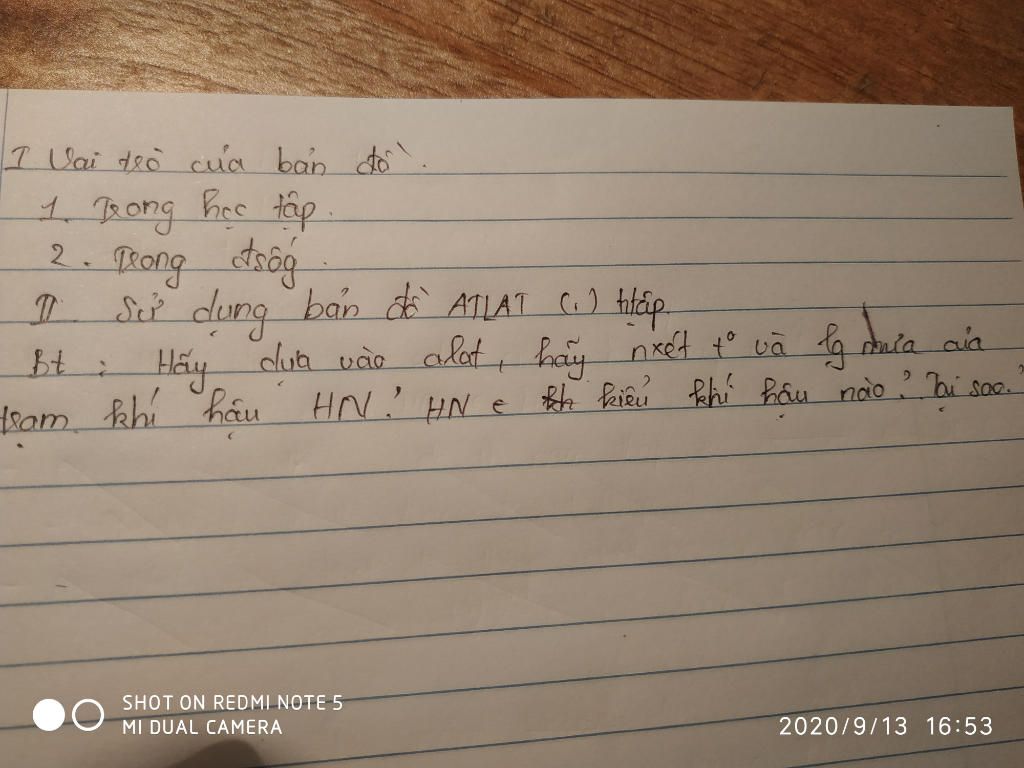 I Vai trò của bản đồ.
1. Trong học tập.
2. Trong đsốg.
II. Sử dụng bản đồ ATLAT (.) htập.
Bt : Hãy dựa vào alat, hãy nxét t° và lg mưa của
trạm khí hậu HN? HN ∈ kiểu khí hậu nào? Tại sao?
SHOT ON REDMI NOTE 5
MI DUAL CAMERA
2020/9/13 16:53